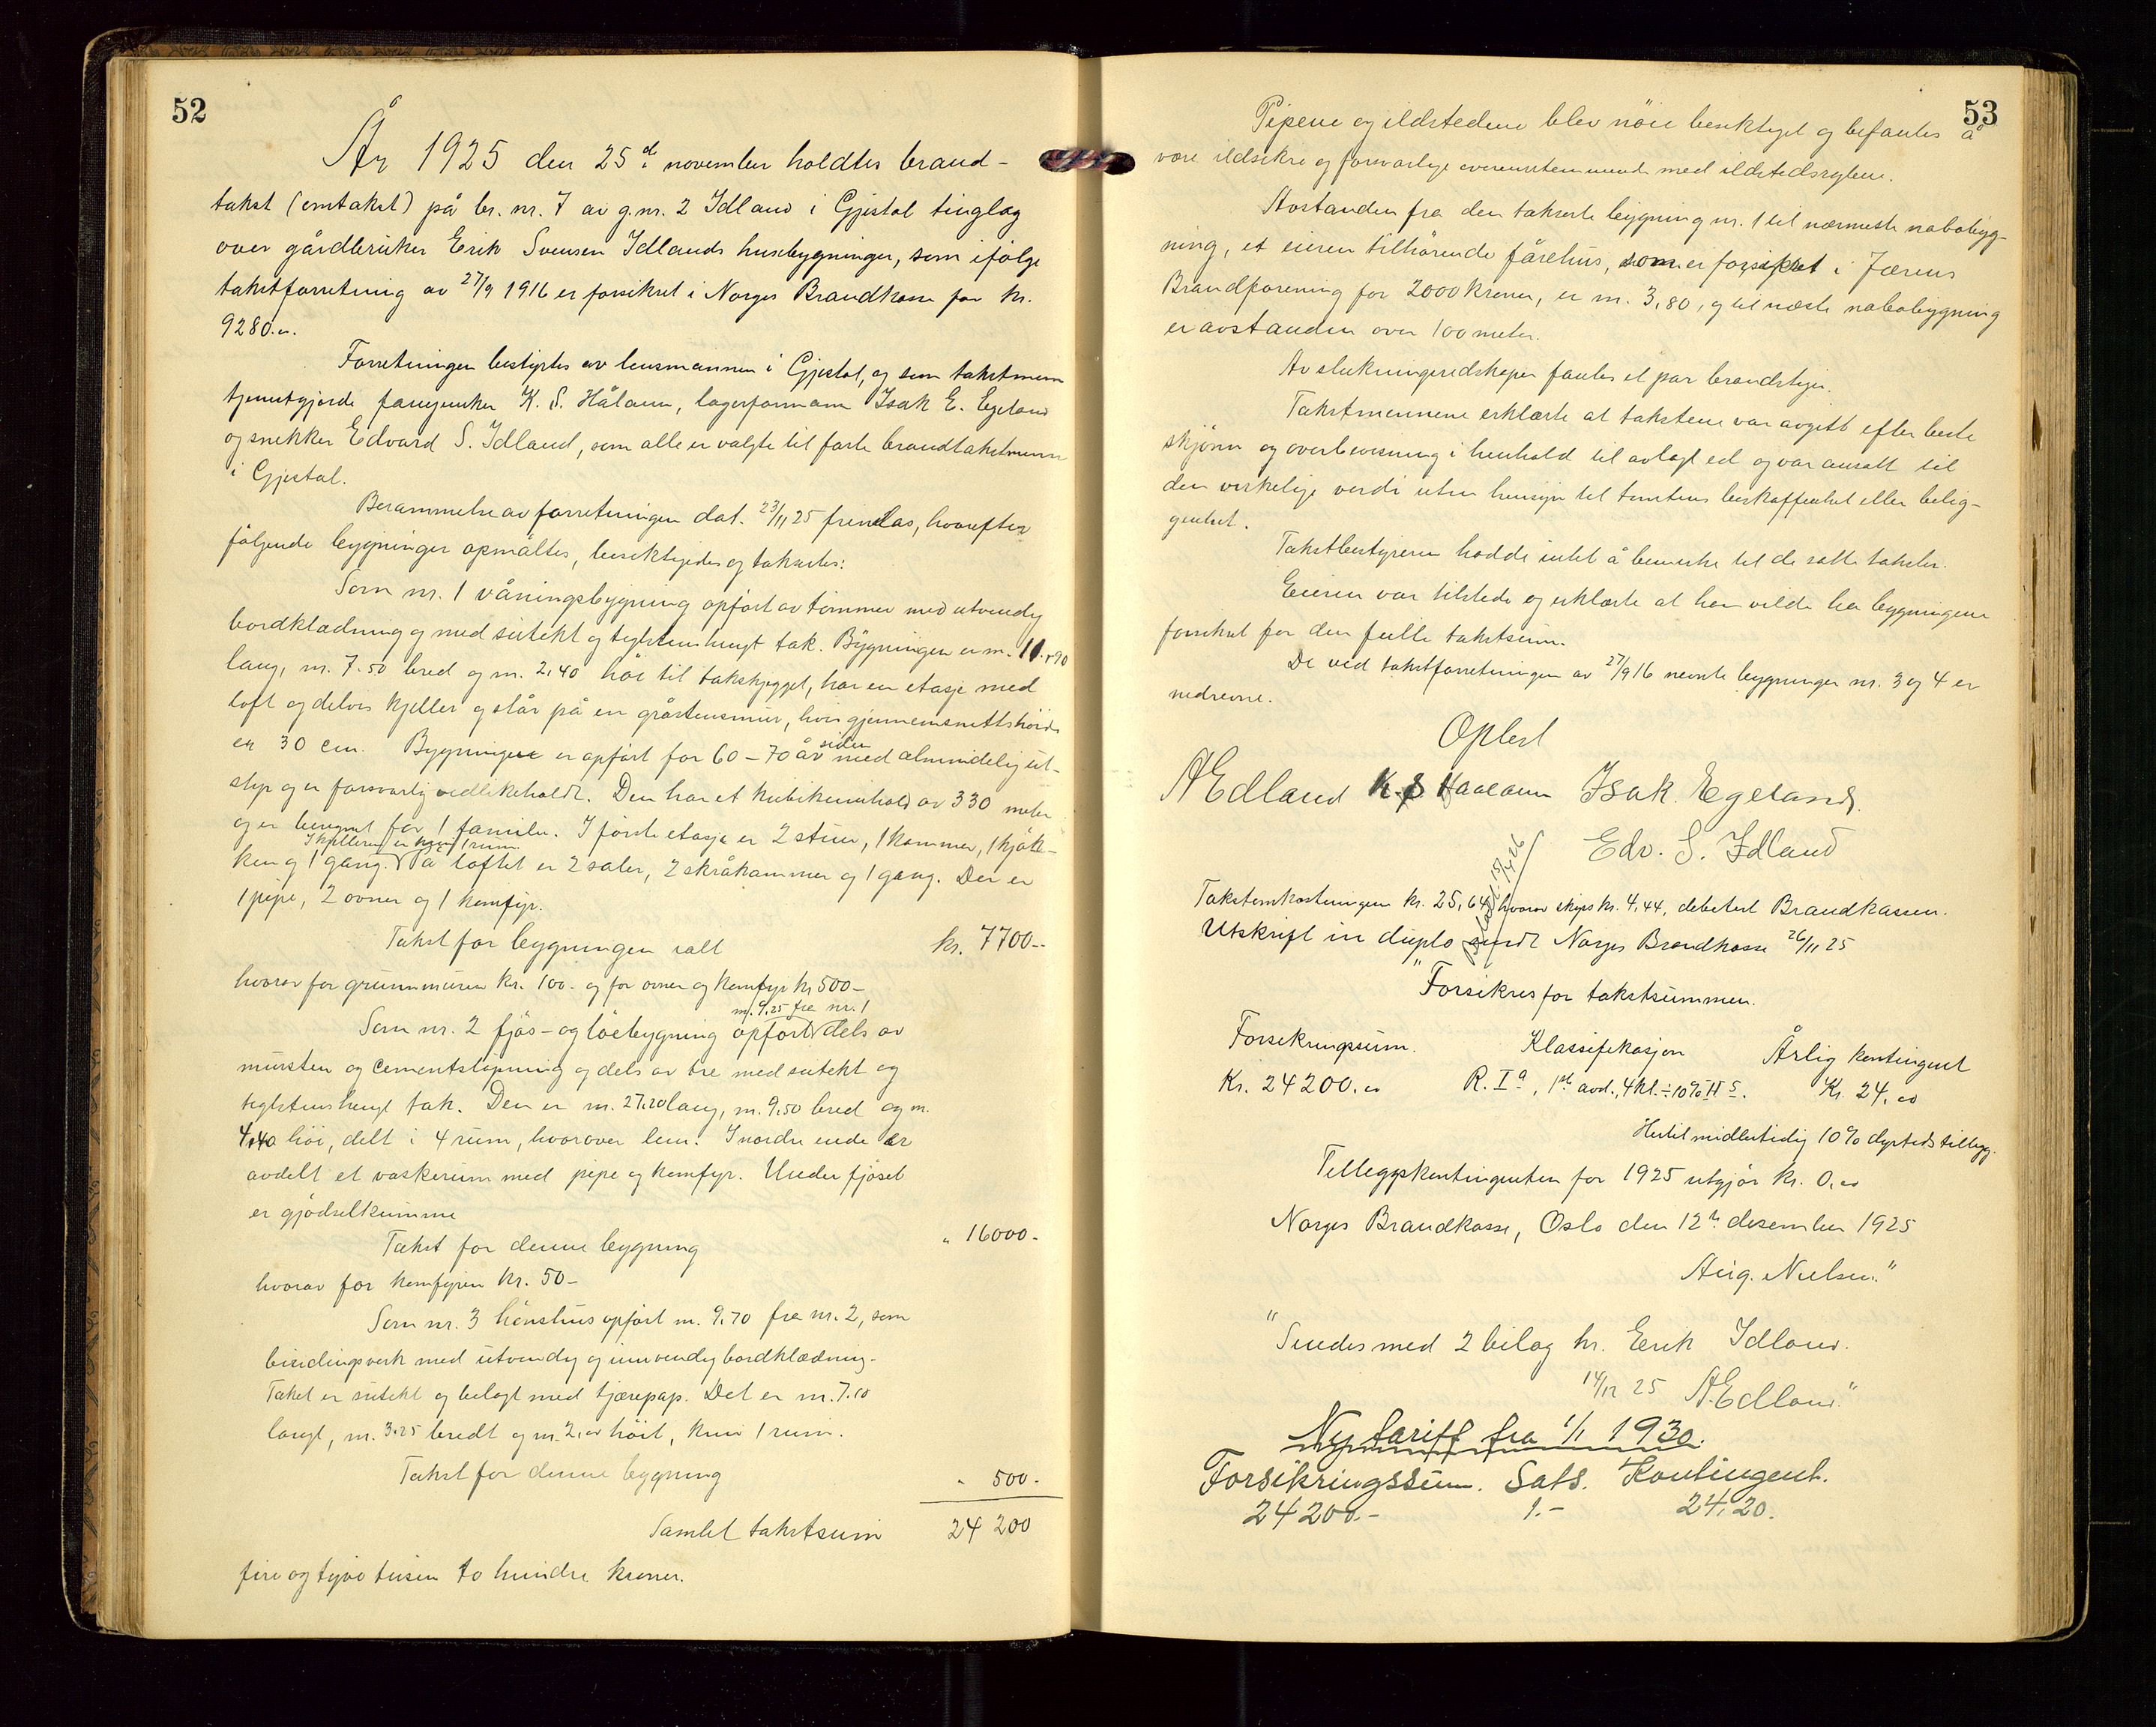 52
År 1925 den 25de november holdtes brand-
takst (omtakst) på br. nr. 7 av g.nr. 2 Idland i Gjestal tinglag
over gårdbruker Erik Svensen Idlands husbygninger, som ifølge
takstforretning av 27/9 1916 er forsikret i Norges Brandkasse for kr.
9280.00.
Forretningen bestyrtes av lensmannen i Gjestal, og som takstmenn
tjenestgjorde K. S. Hålann, lagerformann Isak E. Egeland
og snekker Edvard S. Idland, som alle er valgte til faste brandtakstmenn
i Gjestal.
Berammelse av forretningen dat. 23/11 25 fremlas, hvorefter
følgende bygninger opmåltes, besiktigedes og takseres:
Som nr. 1 våningsbygning opført av tømmer med utvendig
bordklædning og med sutekt og teglstenshengt tak. Bygningen er m. 11.90
lang, m. 7.50 bred og m. 2,40 høi til takskjegget, har en etasje med
loft og delvis kjeller og står på en gråstensmur, hvis gjennemsnittshøide
er 30 cm. Bygningen er opført for 60-70 år siden med almindelig ut-
styr og er forsvarlig vedlikeholdt. Den har et kubikinhold av 330 meter
og er beregnet for 1 familie. I første etasje er 2 stuer, 1 kammer, 1 kjøk-
I kjelleren er kun 1 rum.
ken og 1 gang. På loftet er 2 saler, 2 skråkammer og 1 gang. Der er
1 pipe, 2 ovner og 1 komfyr.
Takst for bygningen ialt kr. 7700--
hvorav for grunnmuren kr. 100.- og for ovner og komfyr kr 500-
m. 9,25 fra nr. 1
Som nr. 2 fjøs- og løebygning opført dels av
mursten og cementstøpning og dels av tre med sutekt og
teglstenshengt tak. Den er m. 27.20 lang, m. 9,50 bred og m.
4,40 høi, delt i 4 rum, hvorover lem. I nordre ende er
avdelt et vaskerum med pipe og komfyr. Under fjøset
er gjødselkumme
Takst for denne bygning " 16000.-
hvorav for komfyren kr. 50-
Som nr. 3 hønsehus opført m. 9.70 fra nr. 2, som
bindingsverk med utvendig og innvendig bordklædning.
Taket er sutekt og belagt med tjærepap. Det er m. 7.10
langt, m. 3.25 bredt og m. 2,00 høit, kun 1 rum.
Takst for denne bygning " 500.-
Samlet takstsum 24 200
fire og tyve tusen to hundre kroner.
53
Pipene og ildstedene blev nøie besiktiget og befantes å
være ildsikre og forsvarlige overensstemmende med ildstedsreglene.
Avstanden fra den takserte bygning nr. 1 til nærmeste nabobyg-
ning, et eieren tilhørende fårehus, som er forsikret i Jærens
Brandforening for 2000 kroner, er m. 3,80, og til næste nabobygning
er avstanden over 100 meter.
Av slukningsredskaper fantes et par brandstiger.
Takstmennene erklærte at takstene var avgitt efter beste
skjønn og overbevisning i henhold til avlagt ed og var ansatt til
den virkelige verdi uten hensyn til tomtens beskaffenhet eller belig-
genhet.
Takstbestyreren hadde intet å bemerke til de satte takster.
Eieren var tilstede og erklærte at han vilde ha bygningene
forsikret for den fulle takstsum.
De ved takstforretningen av 27/9 16 nevnte bygninger nr. 3 og 4 er
nedrevne.
Oplest
A Edland K. S Haalann Isak. Egeland.
Edv. S. Idland
15/4 26
Takstomkostningen kr. 25,64, hvorav skyss kr. 4,44, debetert Brandkassen.
Utskrift in duplo sendt Norges Brandkasse 26/11 25
"Forsikres for takstsummen.
Forsikringssum. Klassifikasjon Årlig kontingent
Kr. 24200.00 R. Ia, 1ste avd., 4 kl. ÷ 10% H S. Kr. 24,00
Hertil midlertidig 10% dyrtidstillegg.
Tilleggskontingenten for 1925 utgjør kr. 0,00
Norges Brandkasse, Oslo den 12te desember 1925
Aug. Nielsen."
"Sendes med 2 bilag hr. Erik Idland.
14/12 25 A. Edland."
Ny tariff fra 1/1 1930.
Forsikringssum. Sats. Kontingent.
24200.- 1.- 24,20.